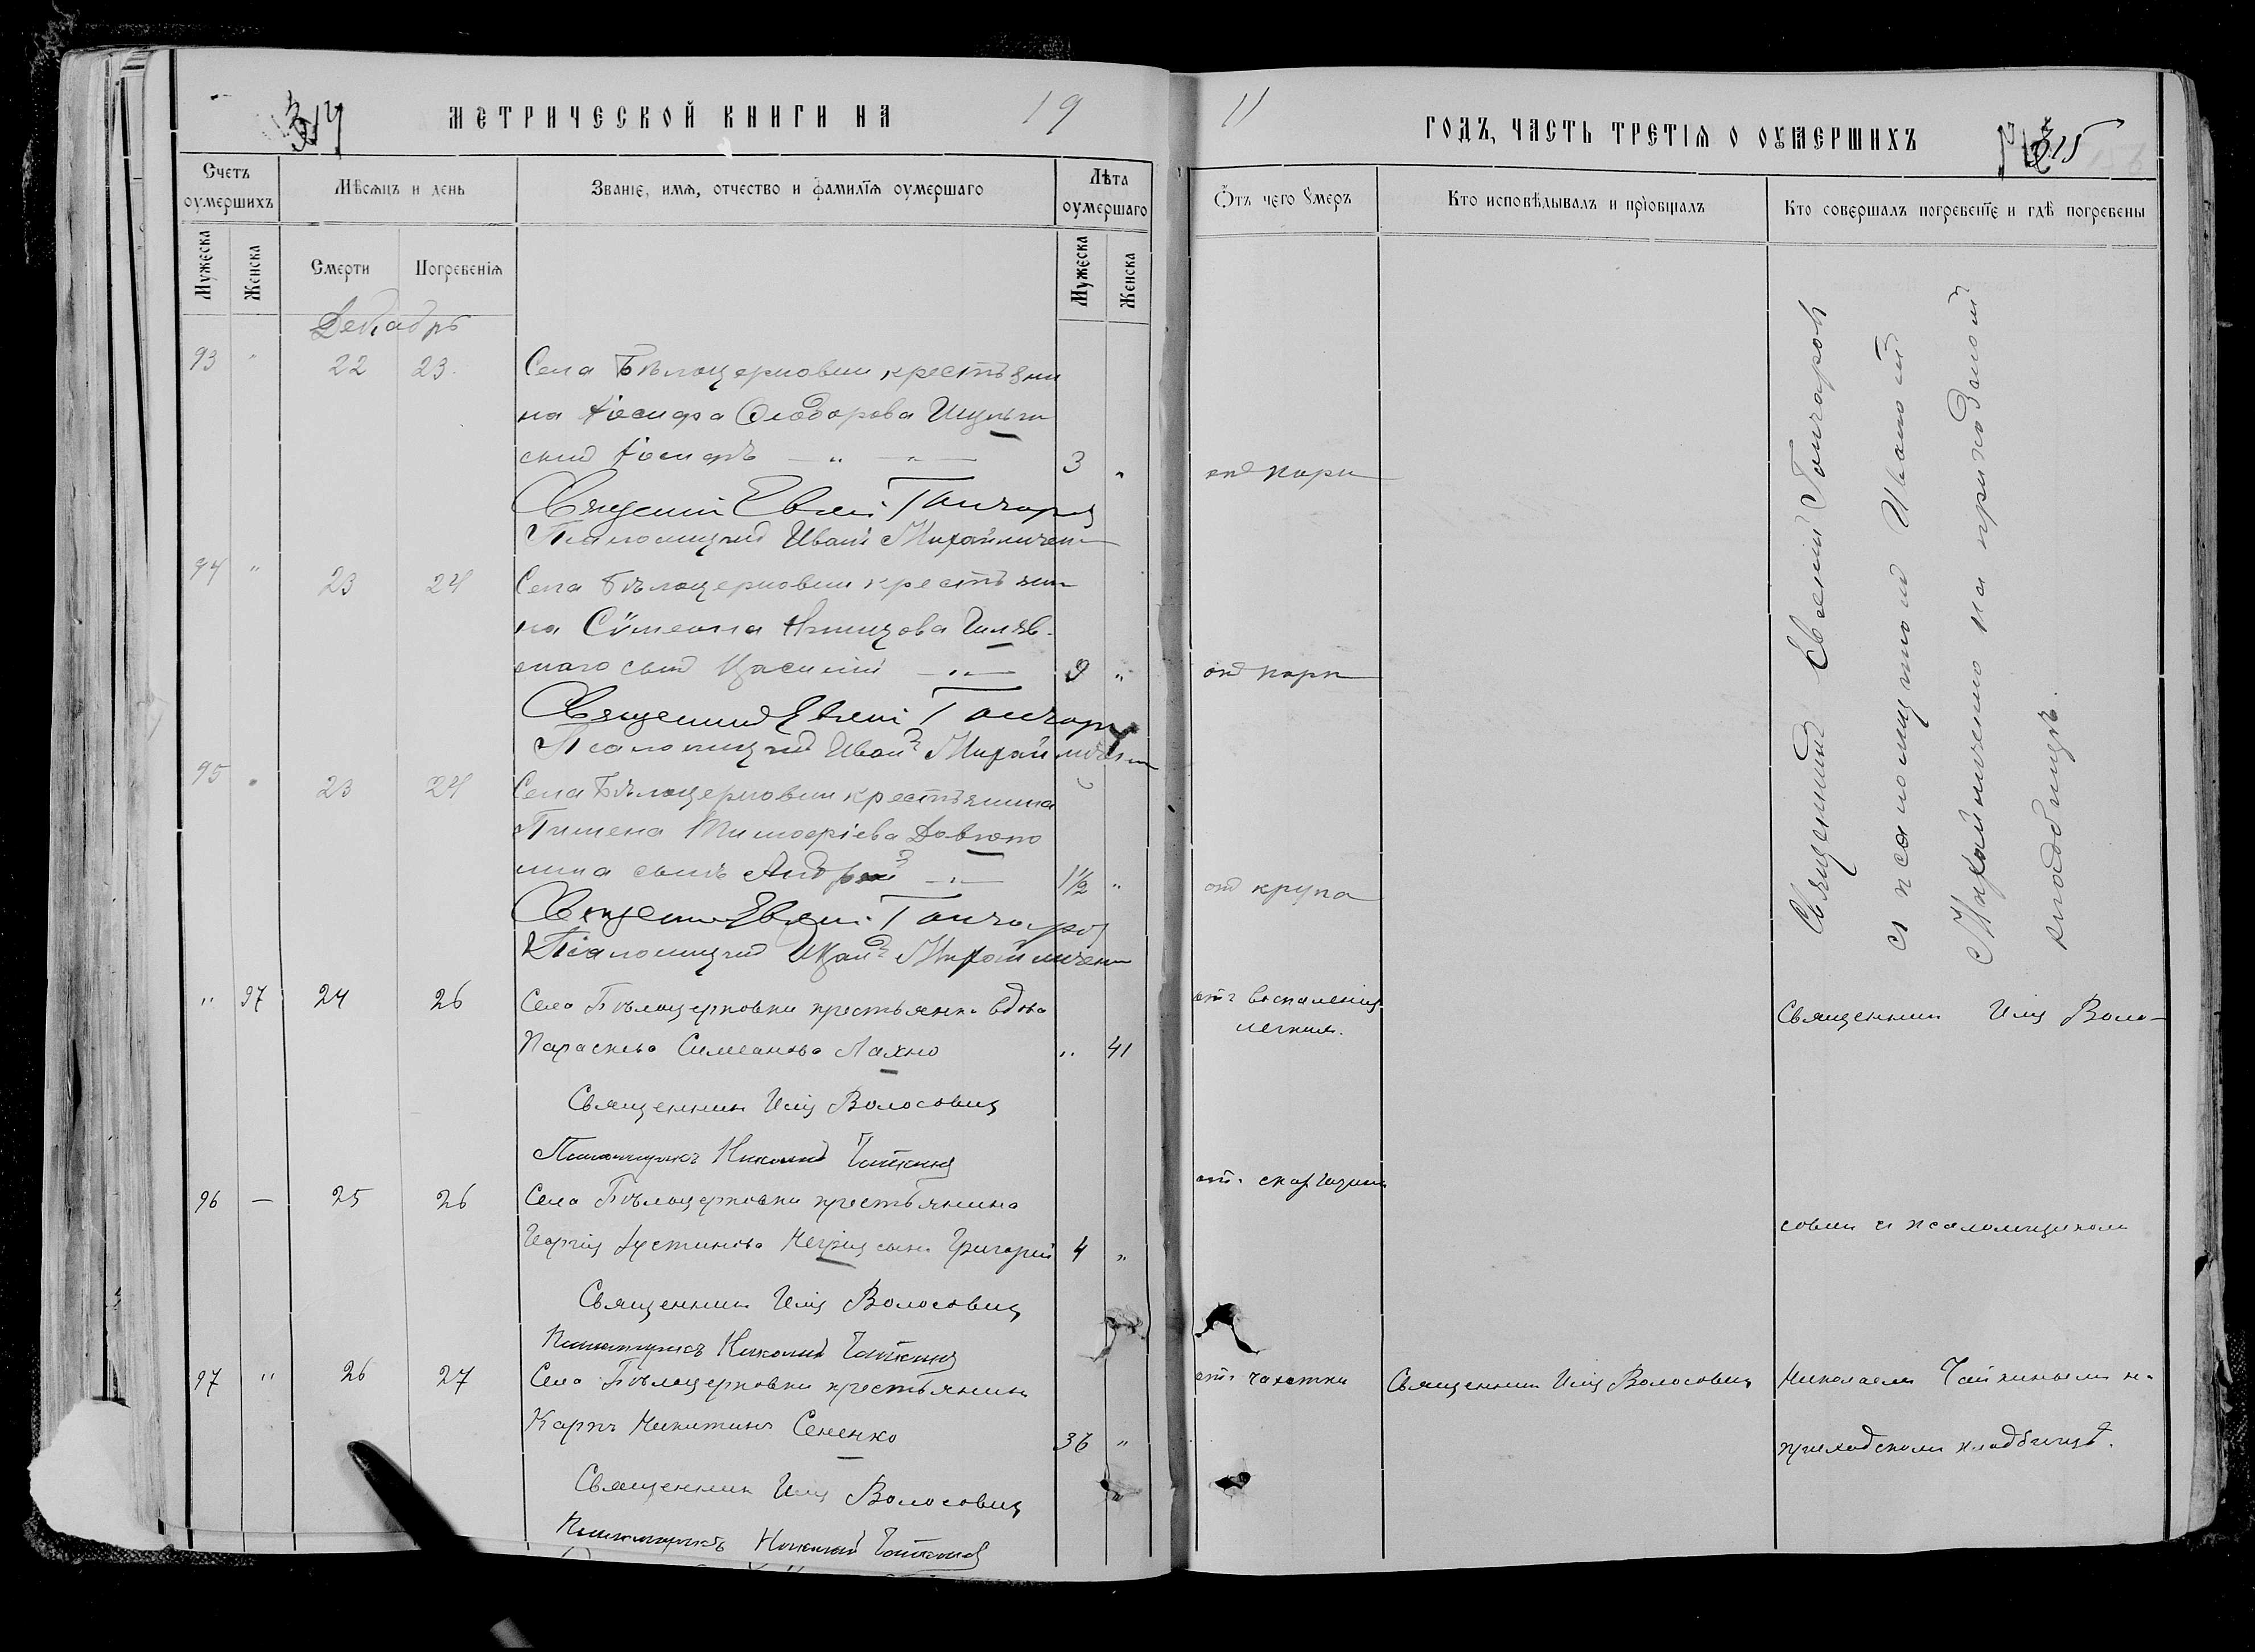 314
МЕТРИЧЕСКОЙ КНИГИ НА 19
11 ГОДЪ, ЧАСТЬ ТРЕТІЯ О ОУМЕРШИХЪ
315
Счетъ оумершихъ
Мѣсяцъ и день
Званіе, имя, отчество и фамилія оумершаго
Лѣта оумершаго
Отъ чего умеръ
Кто исповѣдывалъ и пріобщалъ
Кто совершалъ погребеніе и гдѣ погребены
Мужеска
Женска
Смерти
Погребенія
Мужеска
Женска
Декабрь
93 " 22 23
Села Бѣлоцерковки крестьяни
на Іосифа Ѳеодорова Шульги
сынъ Іосифъ — " — " — 3 "
отъ кори
Священникъ Евгеній Гончаровъ
Псаломщикъ Иванъ Михайличенко
94 " 23 24
Села Бѣлоцерковки крестьяни
на Сѵмеона
скаго сынъ Василій — " — 9 "
отъ кори
Священникъ Евгеній Гончаровъ
Псаломщикъ Иванъ Михайличенко
95 " 23 24
Села Бѣлоцерковки крестьянина
Пимена Тимофѣева
сынъ Андрей — " — 1½ "
отъ крупа
Священникъ Евгеній Гончаровъ
Псаломщикъ Иванъ Михайличенко
Священникъ Евгеній Гончаровъ
съ псаломщикомъ Иваномъ
Михайличенко на приходскомъ
кладбищѣ.
" 97 24 26
Села Бѣлоцерковки крестьянка вдова
Параскева Симеонова Лахно " 41
отъ воспаленія
легкихъ.
Священникъ Илія Волосовичъ
Псаломщикъ Николай Чайкинъ
96 — 25 26
Села Бѣлоцерковки крестьянина
Георгія Іустинова сынъ Григорій 4 "
отъ скарлатины
Священникъ Илія Волосовичъ
Псаломщикъ Николай Чайкинъ
97 " 26 27
Села Бѣлоцерковки крестьянинъ
Карпъ Никитинъ Сененко 36 "
отъ чахотки
Священникъ Илія Волосовичъ
Священникъ Илія Волосовичъ
Псаломщикъ Николай Чайкинъ
Священникъ Илія Воло-
совичъ съ псаломщикомъ
Николаемъ Чайкинымъ на
приходскомъ кладбищѣ.